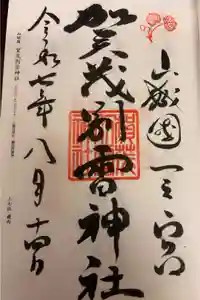 山城國一之宮
賀茂別雷神社
令和七年八月十四日
賀茂別雷神社